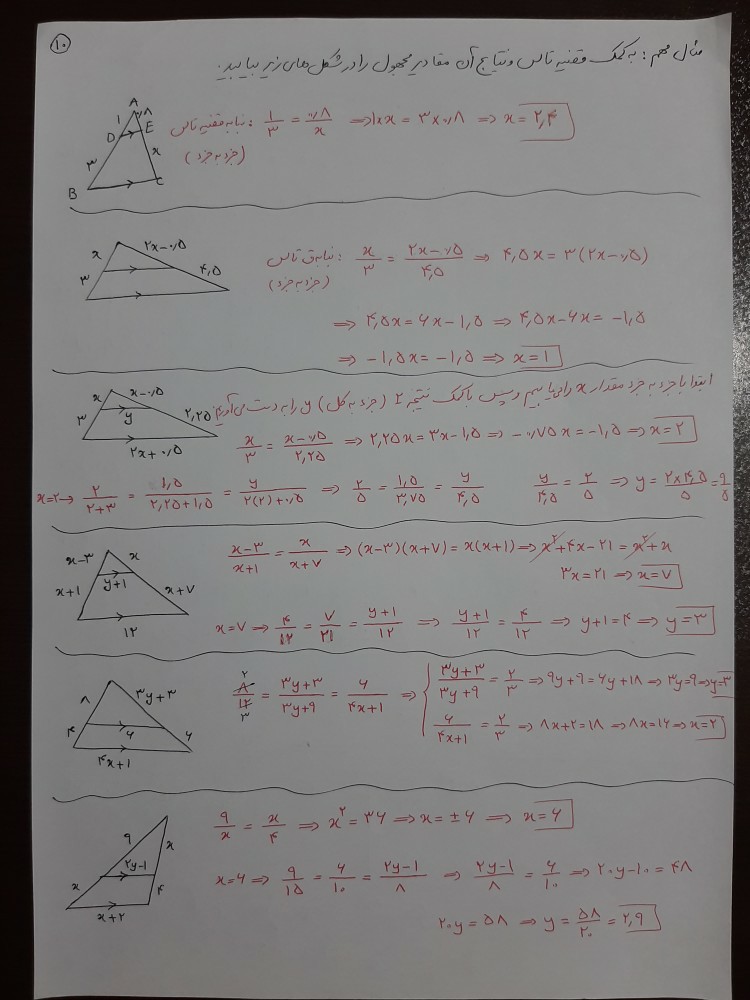 ۱۰
مثال مهم : به کمک قضیه تالس و نتایج آن مقادیر مجهول را در شکل های زیر بیابید.
A
۱ ۰٫۸
D E
۳ x
B C
بنابه قضیه تالس : ۱/۳ = ۰٫۸/x ⇒ ۱×x = ۳×۰٫۸ ⇒ x = ۲٫۴
(جزء به جزء)
x ۲x-۰٫۵
۳ ۴٫۵
بنابه ق تالس : x/۳ = ۲x-۰٫۵/۴٫۵ ⇒ ۴٫۵x = ۳(۲x-۰٫۵)
(جزء به جزء)
⇒ ۴٫۵x = ۶x-۱٫۵ ⇒ ۴٫۵x-۶x = -۱٫۵
⇒ -۱٫۵x = -۱٫۵ ⇒ x=۱
ابتدا با جزء به جزء مقدار x را می یابیم و سپس با کمک نتیجه ۲ (جزء به کل) y را به دست می آوریم
x x-۰٫۵
۳ y ۲٫۲۵
۲x+۰٫۵
x/۳ = x-۰٫۵/۲٫۲۵ ⇒ ۲٫۲۵x = ۳x-۱٫۵ ⇒ -۰٫۷۵x = -۱٫۵ ⇒ x=۲
x=۲ → ۲/۲+۳ = ۱٫۵/۲٫۲۵+۱٫۵ = y/۲(۲)+۰٫۵ ⇒ ۲/۵ = ۱٫۵/۳٫۷۵ = y/۴٫۵ y/۴٫۵ = ۲/۵ ⇒ y = ۲×۴٫۵/۵ = ۹/۵
x-۳ x
x+۱ y+۱ x+۷
۱۲
x-۳/x+۱ = x/x+۷ ⇒ (x-۳)(x+۷) = x(x+۱) ⇒ x²+۴x-۲۱ = x²+x
۳x=۲۱ ⇒ x=۷
x=۷ → ۴/۱۲ = ۷/۲۱ = y+۱/۱۲ ⇒ y+۱/۱۲ = ۴/۱۲ ⇒ y+۱=۴ ⇒ y=۳
۸ ۳y+۳
۴ ۶ ۶
۴x+۱
۲ ۸/۱۲ ۳ = ۳y+۳/۳y+۹ = ۶/۴x+۱ ⇒
۳y+۳/۳y+۹ = ۲/۳ ⇒ ۹y+۹=۶y+۱۸ ⇒ ۳y=۹ ⇒ y=۳
۶/۴x+۱ = ۲/۳ ⇒ ۸x+۲=۱۸ ⇒ ۸x=۱۶ ⇒ x=۲
۹ x
۲y-۱
x ۴
x+۲
۹/x = x/۴ ⇒ x² = ۳۶ ⇒ x = ±۶ ⇒ x=۶
x=۶ ⇒ ۹/۱۵ = ۶/۱۰ = ۲y-۱/۸ ⇒ ۲y-۱/۸ = ۶/۱۰ ⇒ ۲۰y-۱۰ = ۴۸
۲۰y = ۵۸ ⇒ y = ۵۸/۲۰ = ۲٫۹